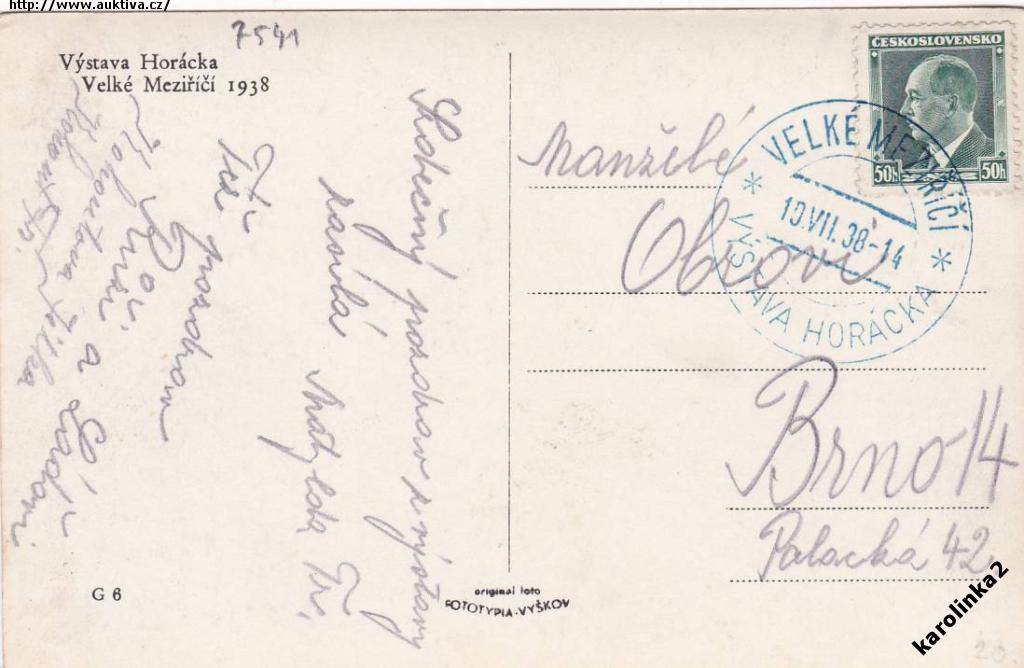 http://www.auktiva.cz/
7541
Výstava Horácka
Velké Meziříčí 1938
Srdečný pozdrav z výstavy
zasílá Matylda Tř.
Též pozdrav
a
G 6
original foto
FOTOTYPIA-VYŠKOV
ČESKOSLOVENSKO
50h 50h
VELKÉ MEZIŘÍČÍ
10.VII.38-14
* VÝSTAVA HORÁCKA *
Manželé
Obrovi
Brno 14
Palacká 42
karolinka2
20